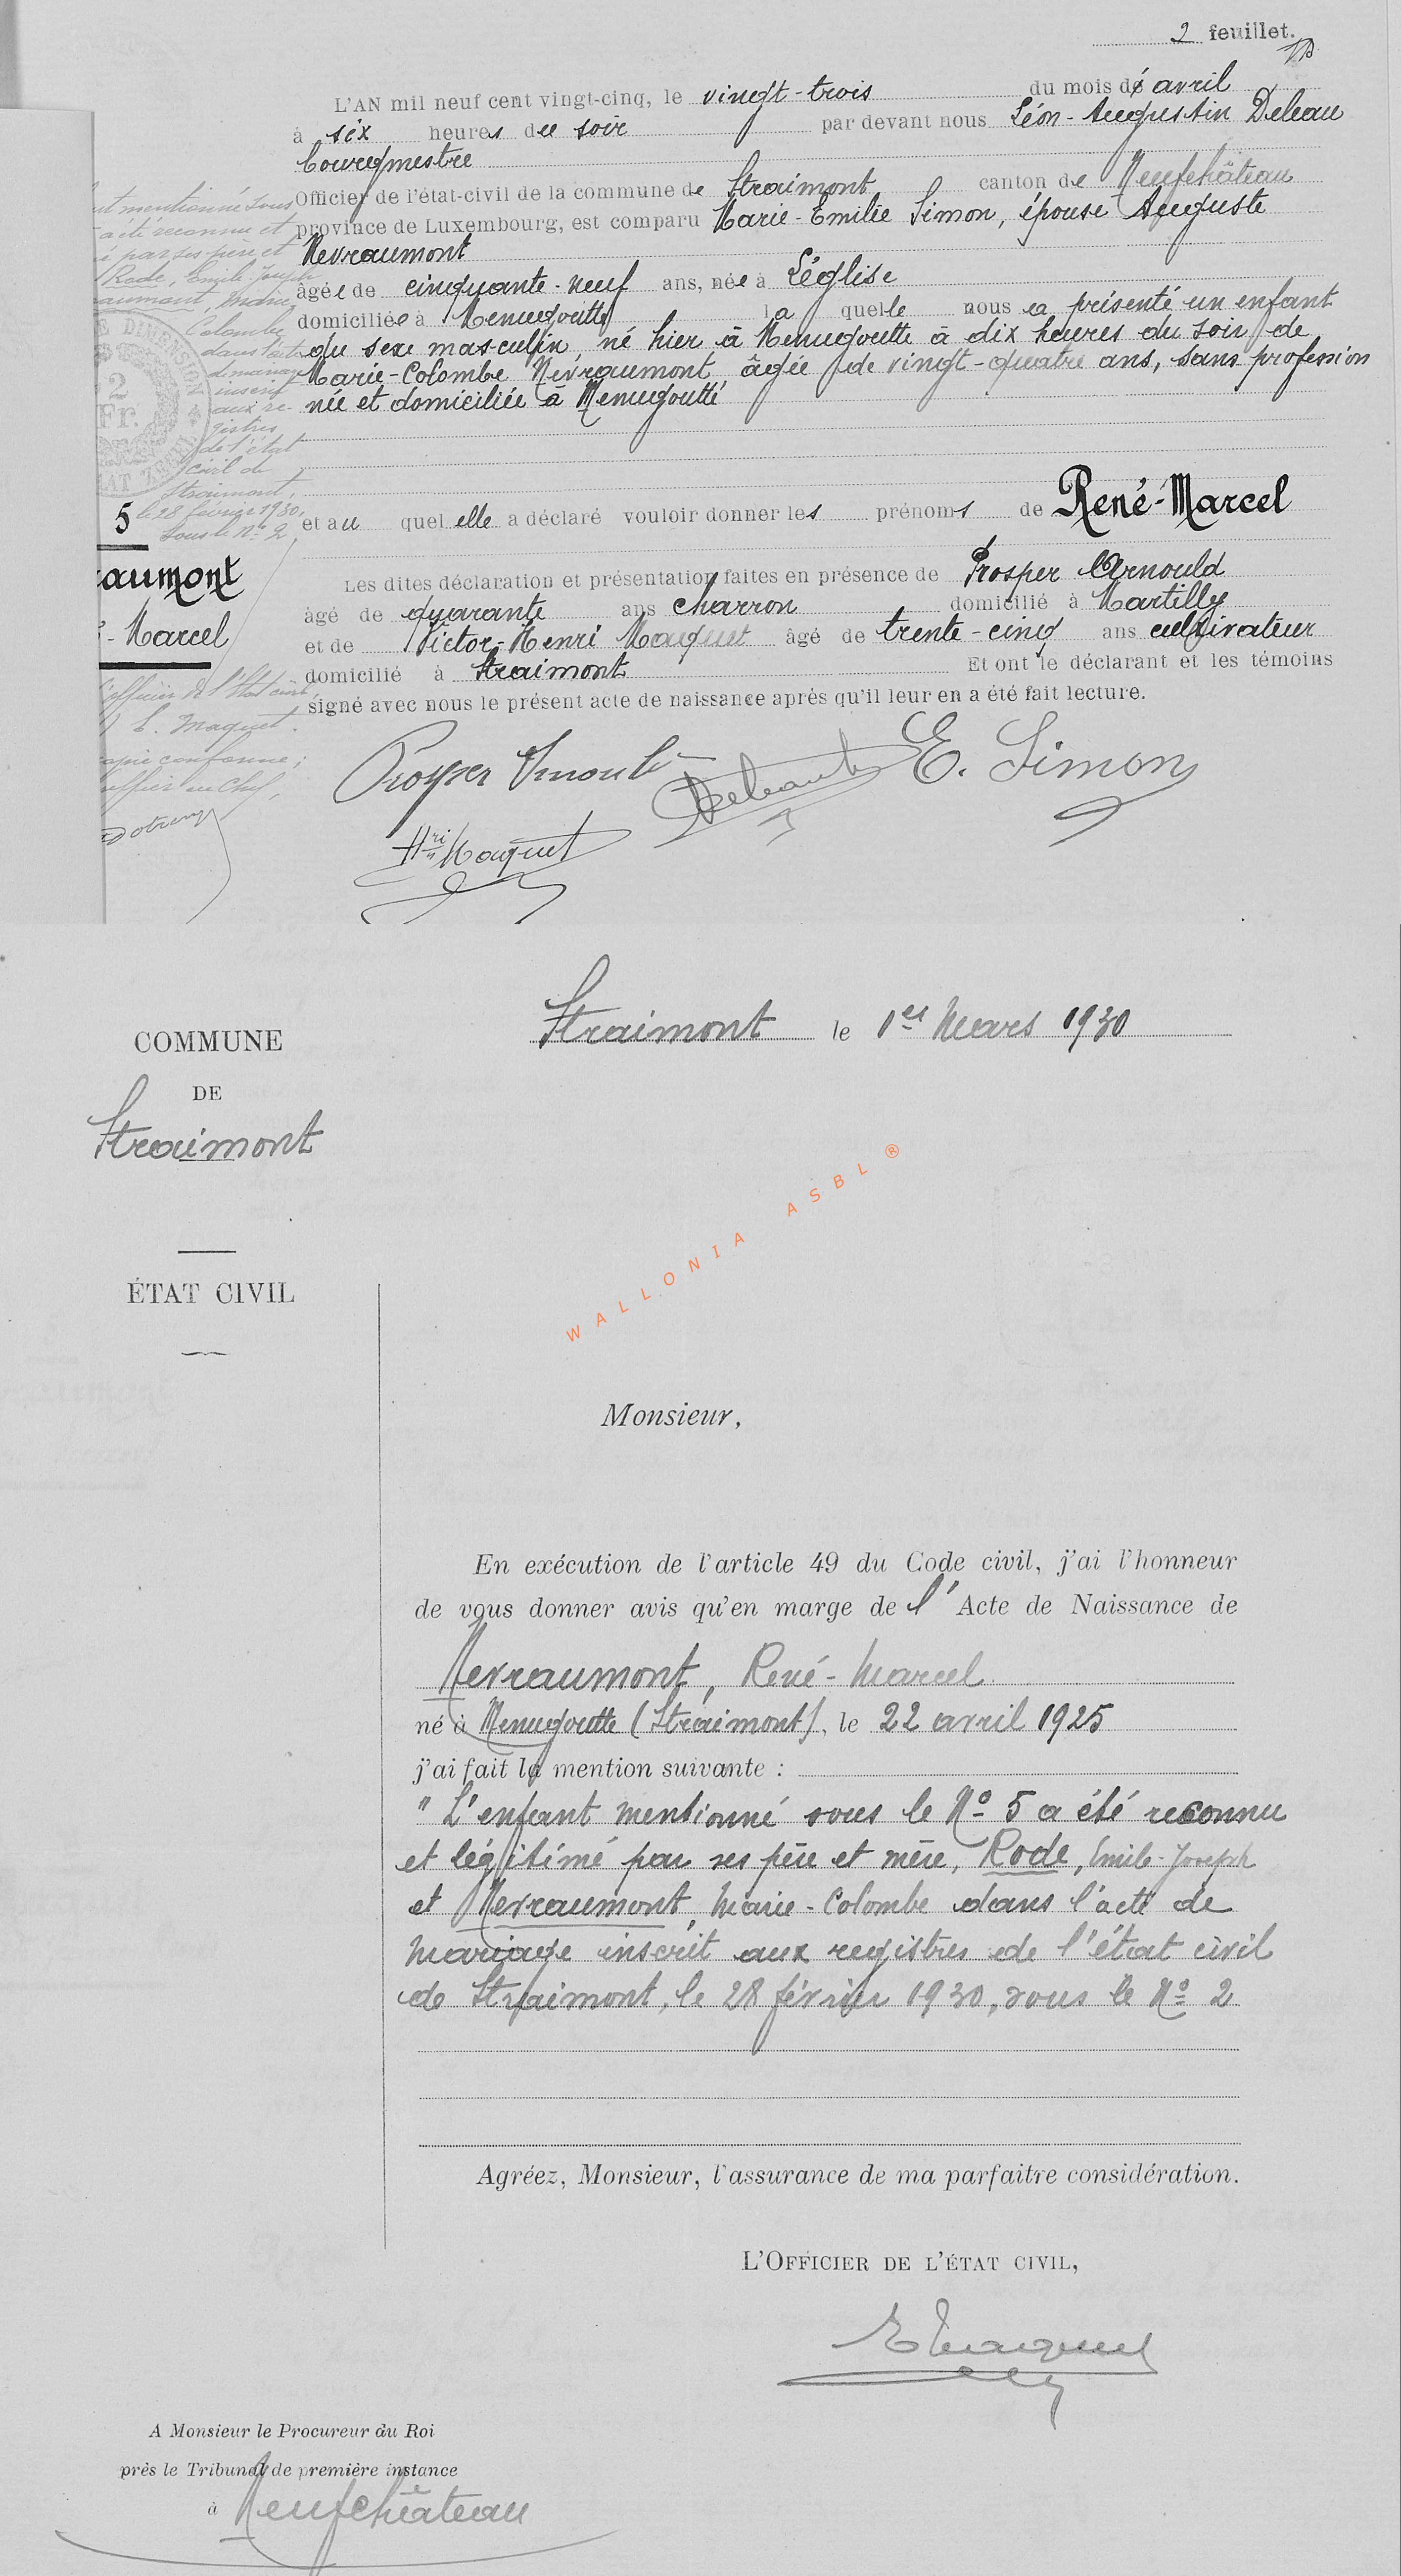 2 feuillet.
L'AN mil neuf cent vingt-cinq, le vingt-trois du mois d'avril
à six heures du soir par devant nous Léon-Augustin Deleau
bourgmestre
Officier de l'état-civil de la commune de Straimont canton de Neufchâteau
province de Luxembourg, est comparu Marie-Emilie Simon, épouse Auguste
Nevraumont
âgée de cinquante-neuf ans, née à Léglise
domiciliée à Menugoutte la quelle nous a présenté un enfant
du sexe masculin, né hier à Menugoutte à dix heures du soir de
Marie-Colombe Nevraumont, âgée de vingt-quatre ans, sans profession
née et domiciliée à Menugoutte
et au quel elle a déclaré vouloir donner les prénoms de René-Marcel
Les dites déclaration et présentation faites en présence de Prosper Arnould
âgé de quarante ans charron domicilié à Martilly
et de Victor-Henri Maquet âgé de trente-cinq ans cultivateur
domicilié à Straimont Et ont le déclarant et les témoins
signé avec nous le présent acte de naissance après qu'il leur en a été fait lecture.
Prosper Arnould Deleau E. Simon
Hri Maquet
ut mentionné sous
a été reconnu et
é par ses père et
Rode, Emile-Joseph
aumont, Marie
Colombe
dans l'acte
d mariage
inscrit
aux re-
gistres
de l'état
civil de
Straimont,
le 28 février 1930,
sous le No 2
5
aumont
-Marcel
l'officier de l'état civil,
E. Maquet.
copie conforme;
COMMUNE
DE
Straimont
ÉTAT CIVIL
Straimont le 1er Mars 1930
WALLONIA ASBL ®
Monsieur,
En exécution de l'article 49 du Code civil, j'ai l'honneur
de vous donner avis qu'en marge de l' Acte de Naissance de
Nevraumont, René-Marcel
né à Menugoutte (Straimont), le 22 avril 1925
j'ai fait la mention suivante :
" L'enfant mentionné sous le No 5 a été reconnu
et légitimé par ses père et mère, Rode, Emile-Joseph
et Nevraumont, Marie-Colombe dans l'acte de
mariage inscrit aux registres de l'état civil
de Straimont, le 28 février 1930, sous le No 2
Agréez, Monsieur, l'assurance de ma parfaitre considération.
L'OFFICIER DE L'ÉTAT CIVIL,
E Maquet
A Monsieur le Procureur du Roi
près le Tribunal de première instance
à Neufchâteau